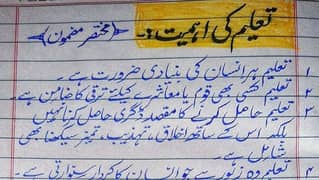 تعلیم کی اہمیت :۔ (مختصر مضمون)
۱ تعلیم ہر انسان کی بنیادی ضرورت ہے ۔
۲ تعلیم کسی بھی قوم یا معاشرے کیلئے ترقی کا ضامن ہے ۔
۳ تعلیم حاصل کرنے کا مقصد ڈگری حاصل کرنا نہیں
بلکہ اس کے ساتھ اخلاق ، تہذیب ، تمیز سیکھنا بھی
شامل ہے ۔
۴ تعلیم وہ زیور ہے جو انسان کا کردار سنوارتی ہے ۔